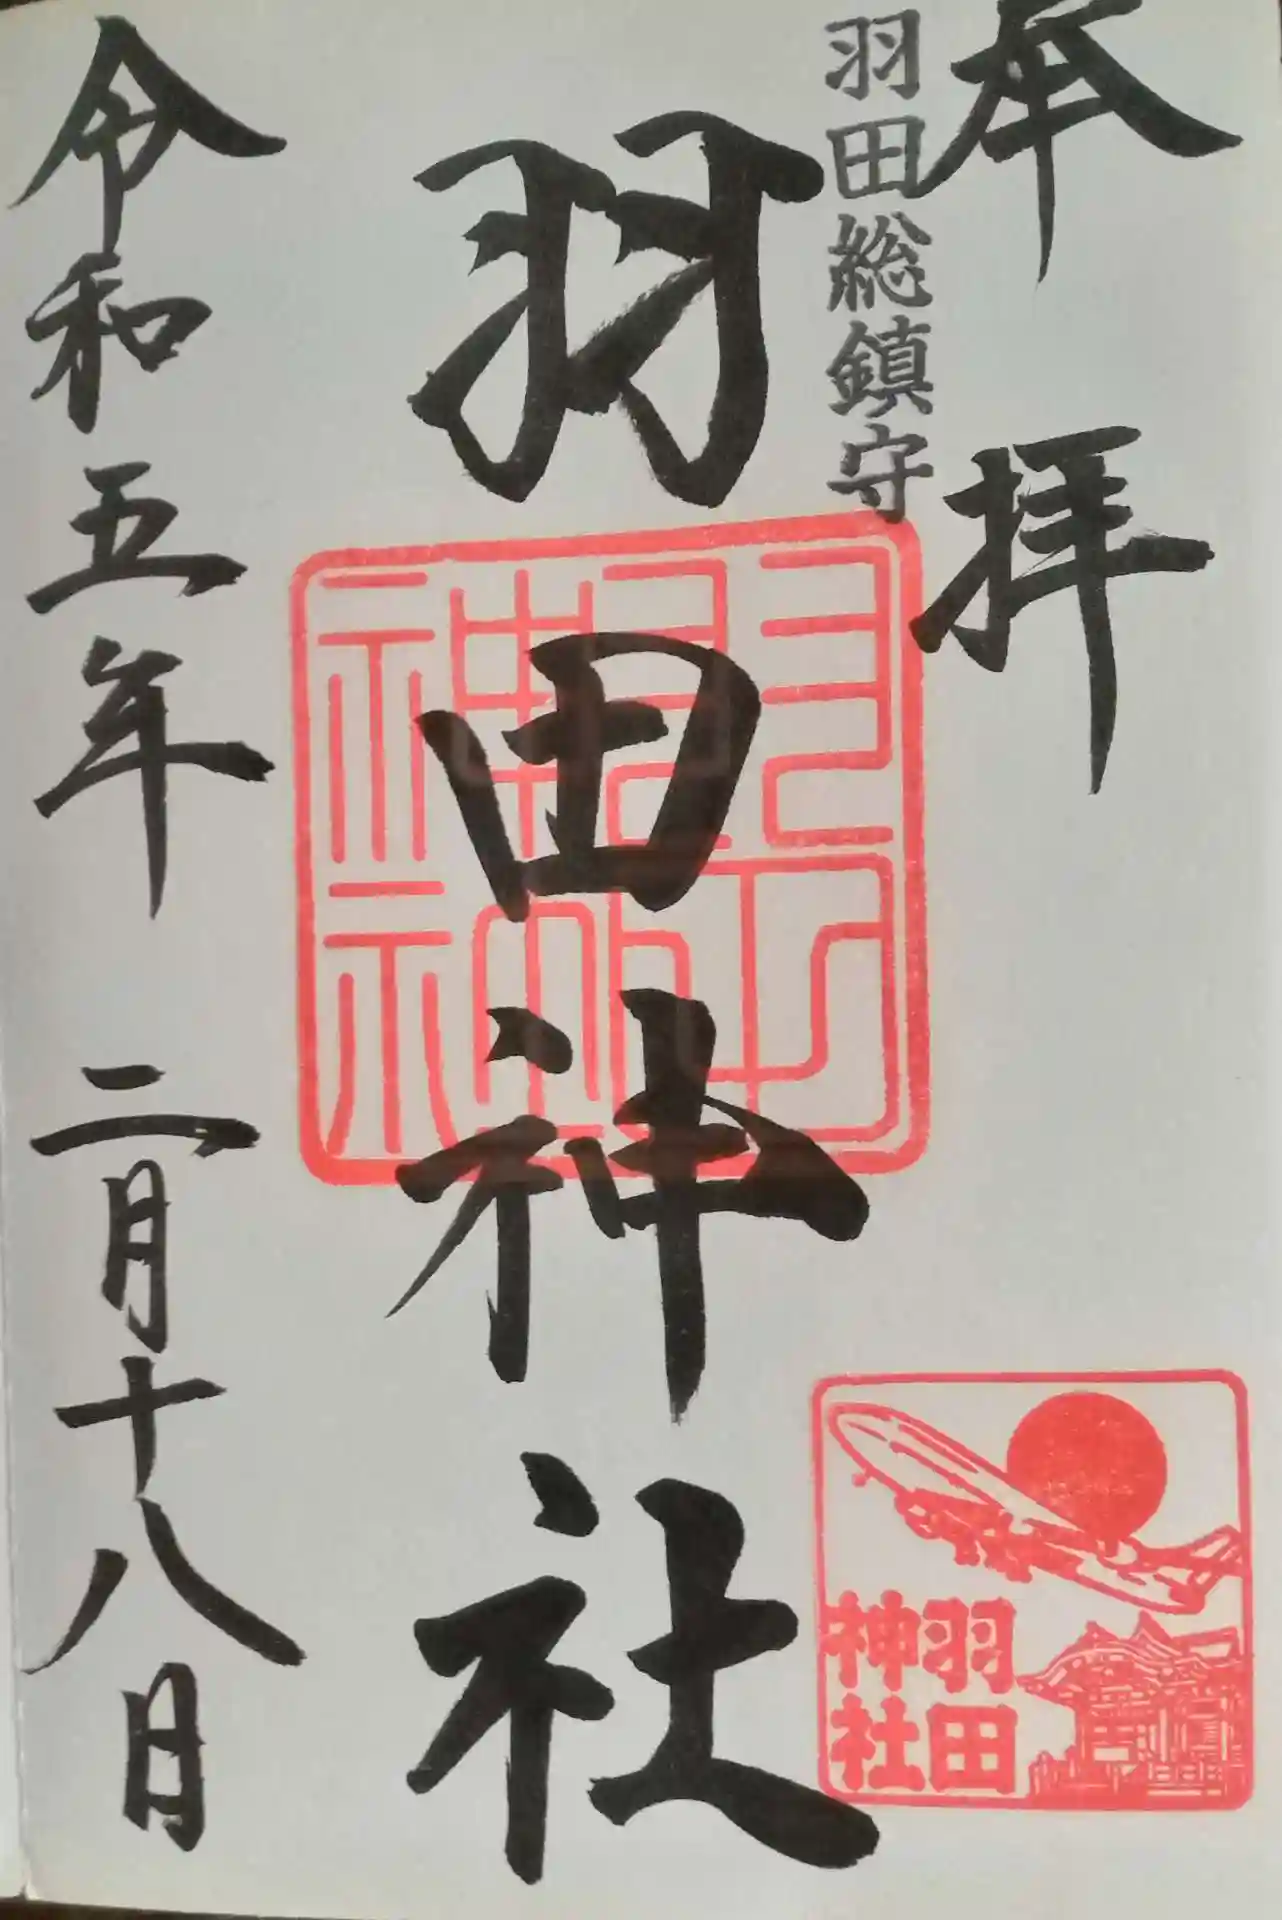 奉拝
羽田総鎮守
羽田神社
羽田
神社
令和五年 二月十八日